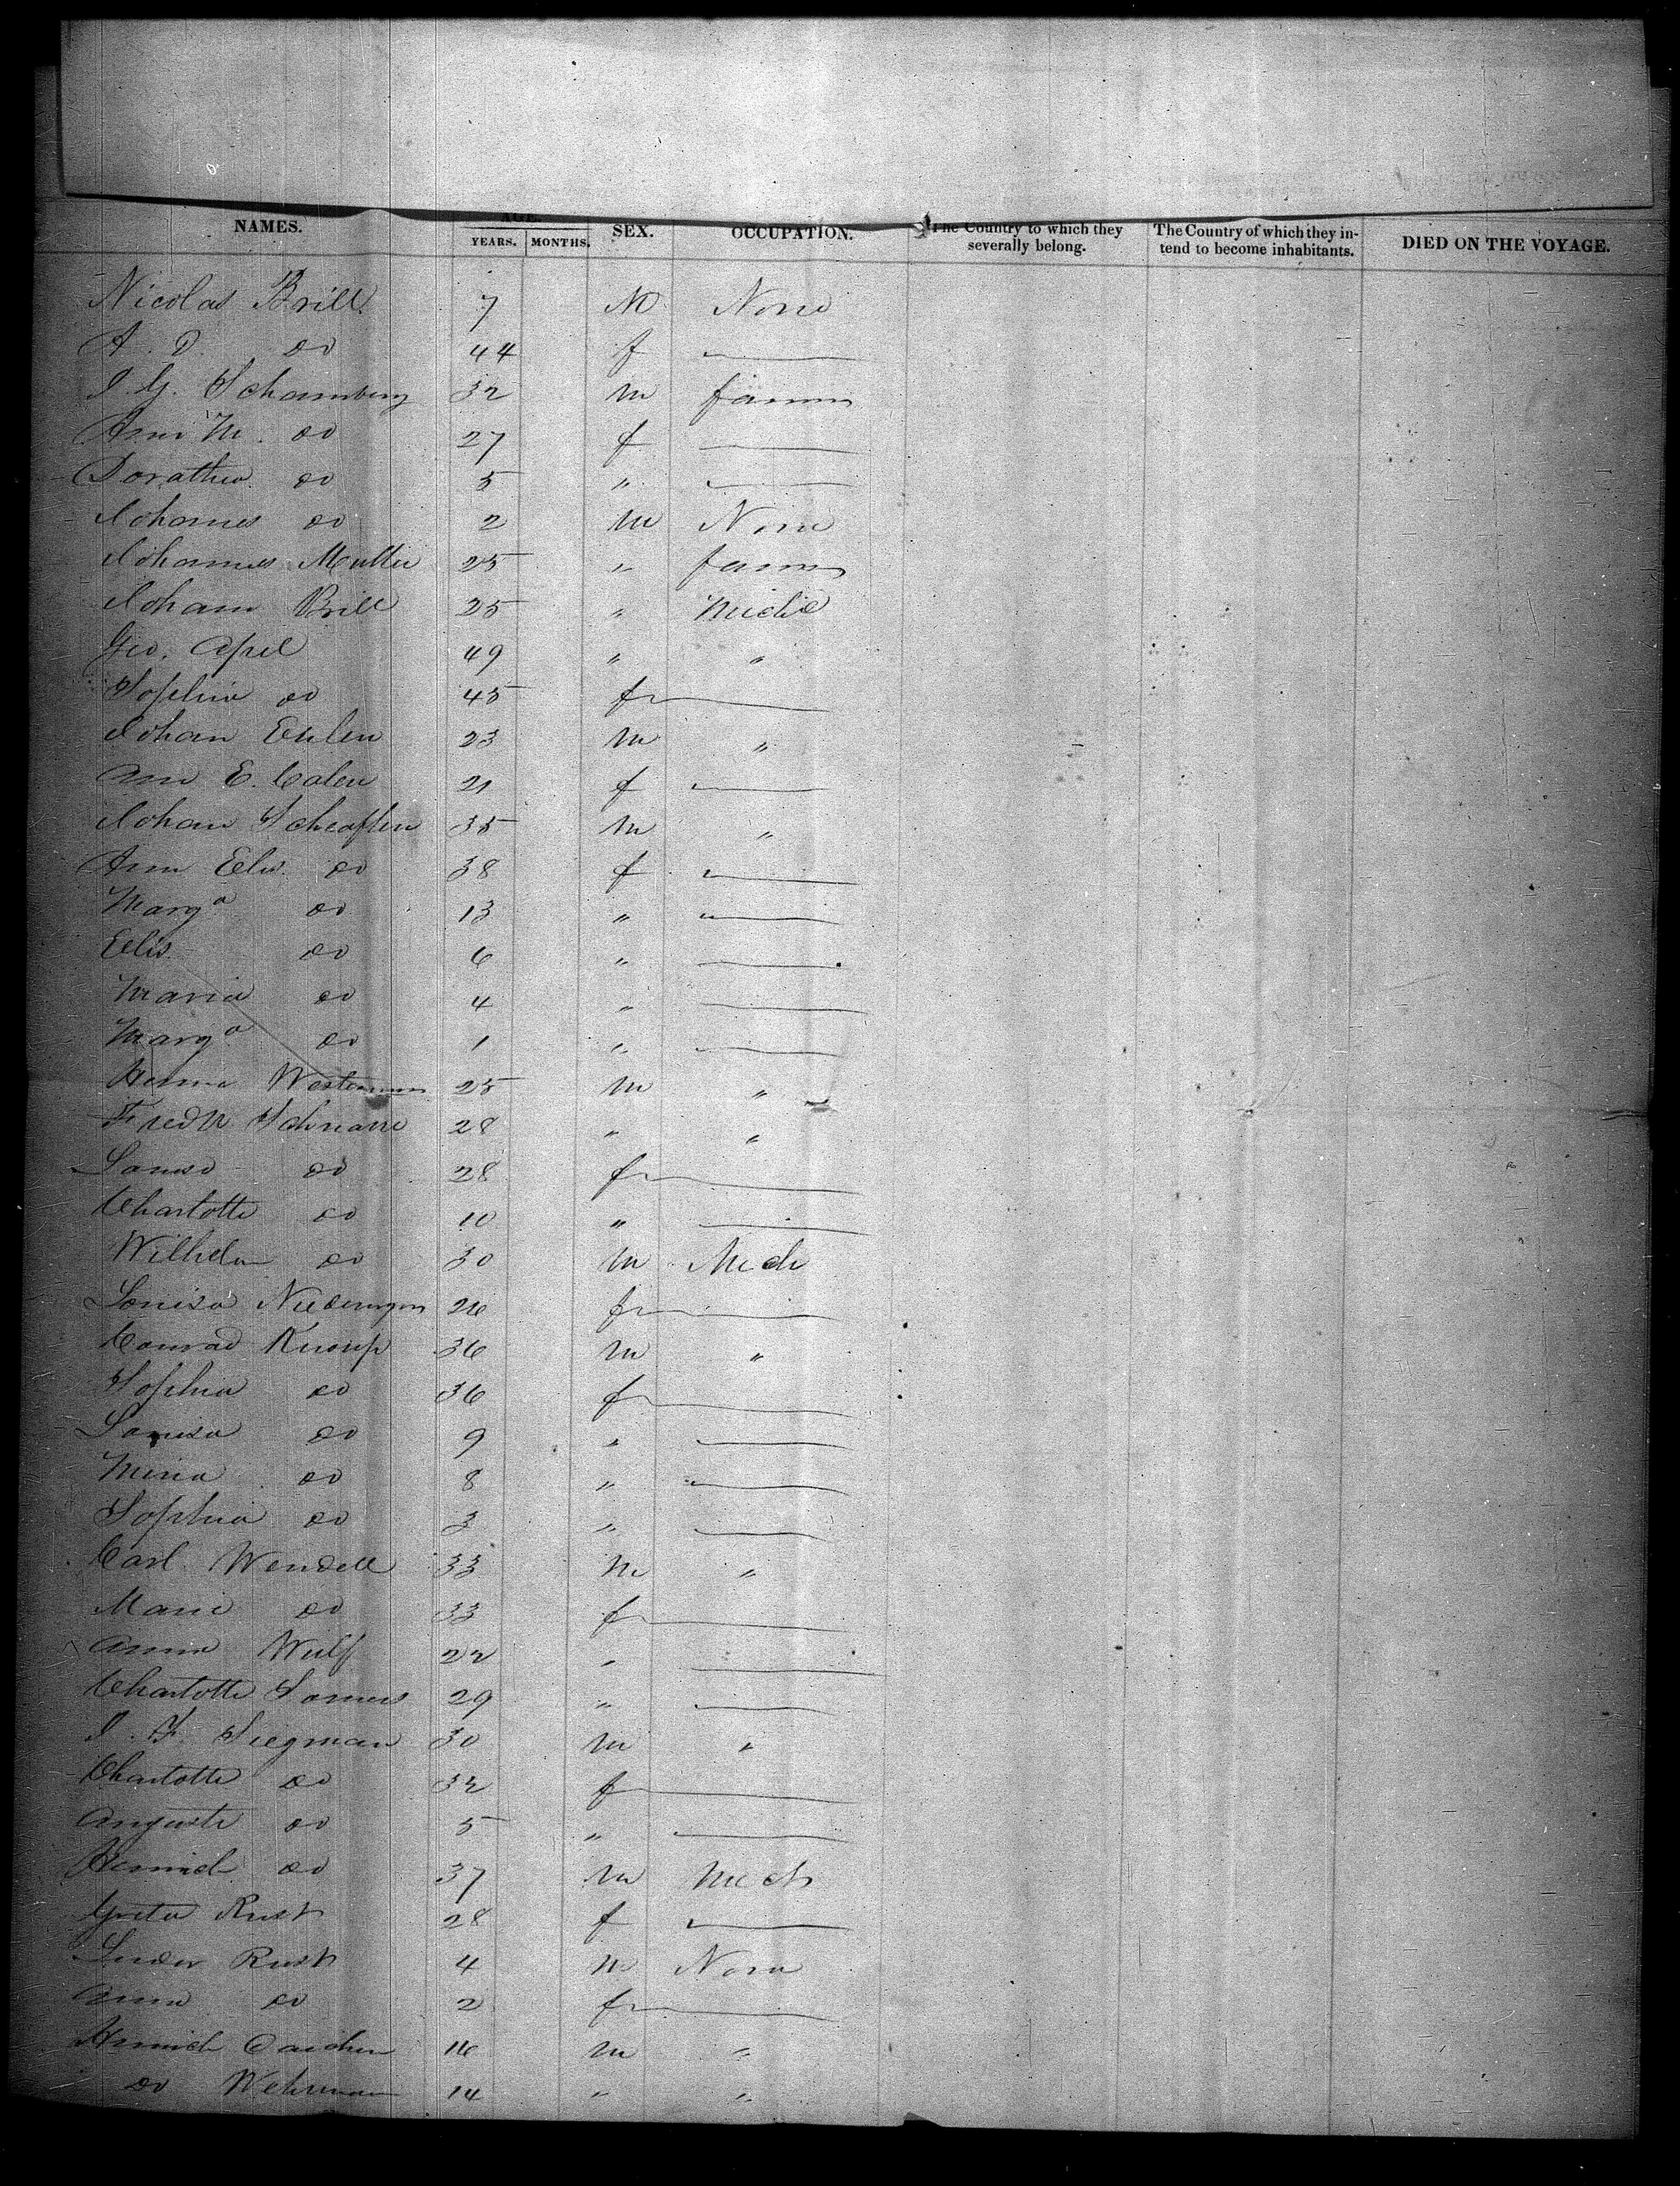 NAMES. AGE. YEARS. MONTHS. SEX. OCCUPATION. The Country to which they severally belong. The Country of which they intend to become inhabitants. DIED ON THE VOYAGE.
Nicolas Brill 7 M None
A. D. do 44 f
J. G. Schamberg 32 m farmer
Ann M. do 27 f
Dorathea do 5 "
Johannes do 2 m None
Johannes Muller 25 " farmer
Johann Brill 25 "
Geo. Apel 49 " "
Sophia do 45 f
Johan Eulen 23 m "
Ann E. 21 f
Johan 35 m "
Ann Elis. do 38 f
Marga do 13 "
Elis. do 6 "
Maria do 4 "
Marga do 1 "
Westermann 25 m "
Fredk 28 " "
Louise do 28 f
Charlotte do 10 "
Wilhelm do 30 m Mech
Louisa 26 f
Conrad 36 m "
Sophia do 36 f
Louisa do 9 "
Mina do 8 "
Sophia do 3 "
Carl Wendell 33 m "
Marie do 33 f
Anna Wulf 22 "
Charlotte 29 "
J. F. Siegman 30 m "
Charlotte do 32 f
Auguste do 5 "
Henrich do 37 m Mech
Greta Rust 28 f
Luder Rust 4 m None
Anna do 2 f
Henrich 16 m "
do Wehrman 14 " "